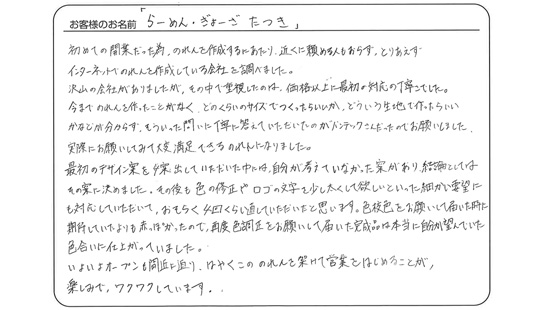 お客様のお名前「らーめん・ぎょーざ たつき」
初めての開業だった為、のれんを作成するにあたり、近くに頼める人もおらず、とりあえず
インターネットでのれんを作成している会社を調べました。
沢山の会社がありましたが、その中で重視したのは、価格以上に最初の対応の丁寧でした。
今までのれんを作ったことがなく、どのくらいのサイズでつくったらいいか、どういう生地で作ったらいい
かなどが分からず、そういった問いに丁寧に答えていただいたのがバンテックさんだったのでお願いしました。
実際にお願いしてみて大変満足できるのれんになりました。
最初のデザイン案を4案出していただいた中には、自分が考えていなかった案があり、結論としては
その案に決めました。その後も色の修正やロゴの文字を少し太くして欲しいといった細かい要望に
も対応していただいて、おそらく4回くらい直していただいたと思います。色校色をお願いして届いた時に
期待していたよりも赤っぽかったので、再度色調正をお願いして届いた完成品は本当に自分が望んでいた
色合いに仕上がっていました。
いよいよオープンも間近に迫り、はやくこののれんを架けて営業をはじめることが、
楽しみで、ワクワクしています。